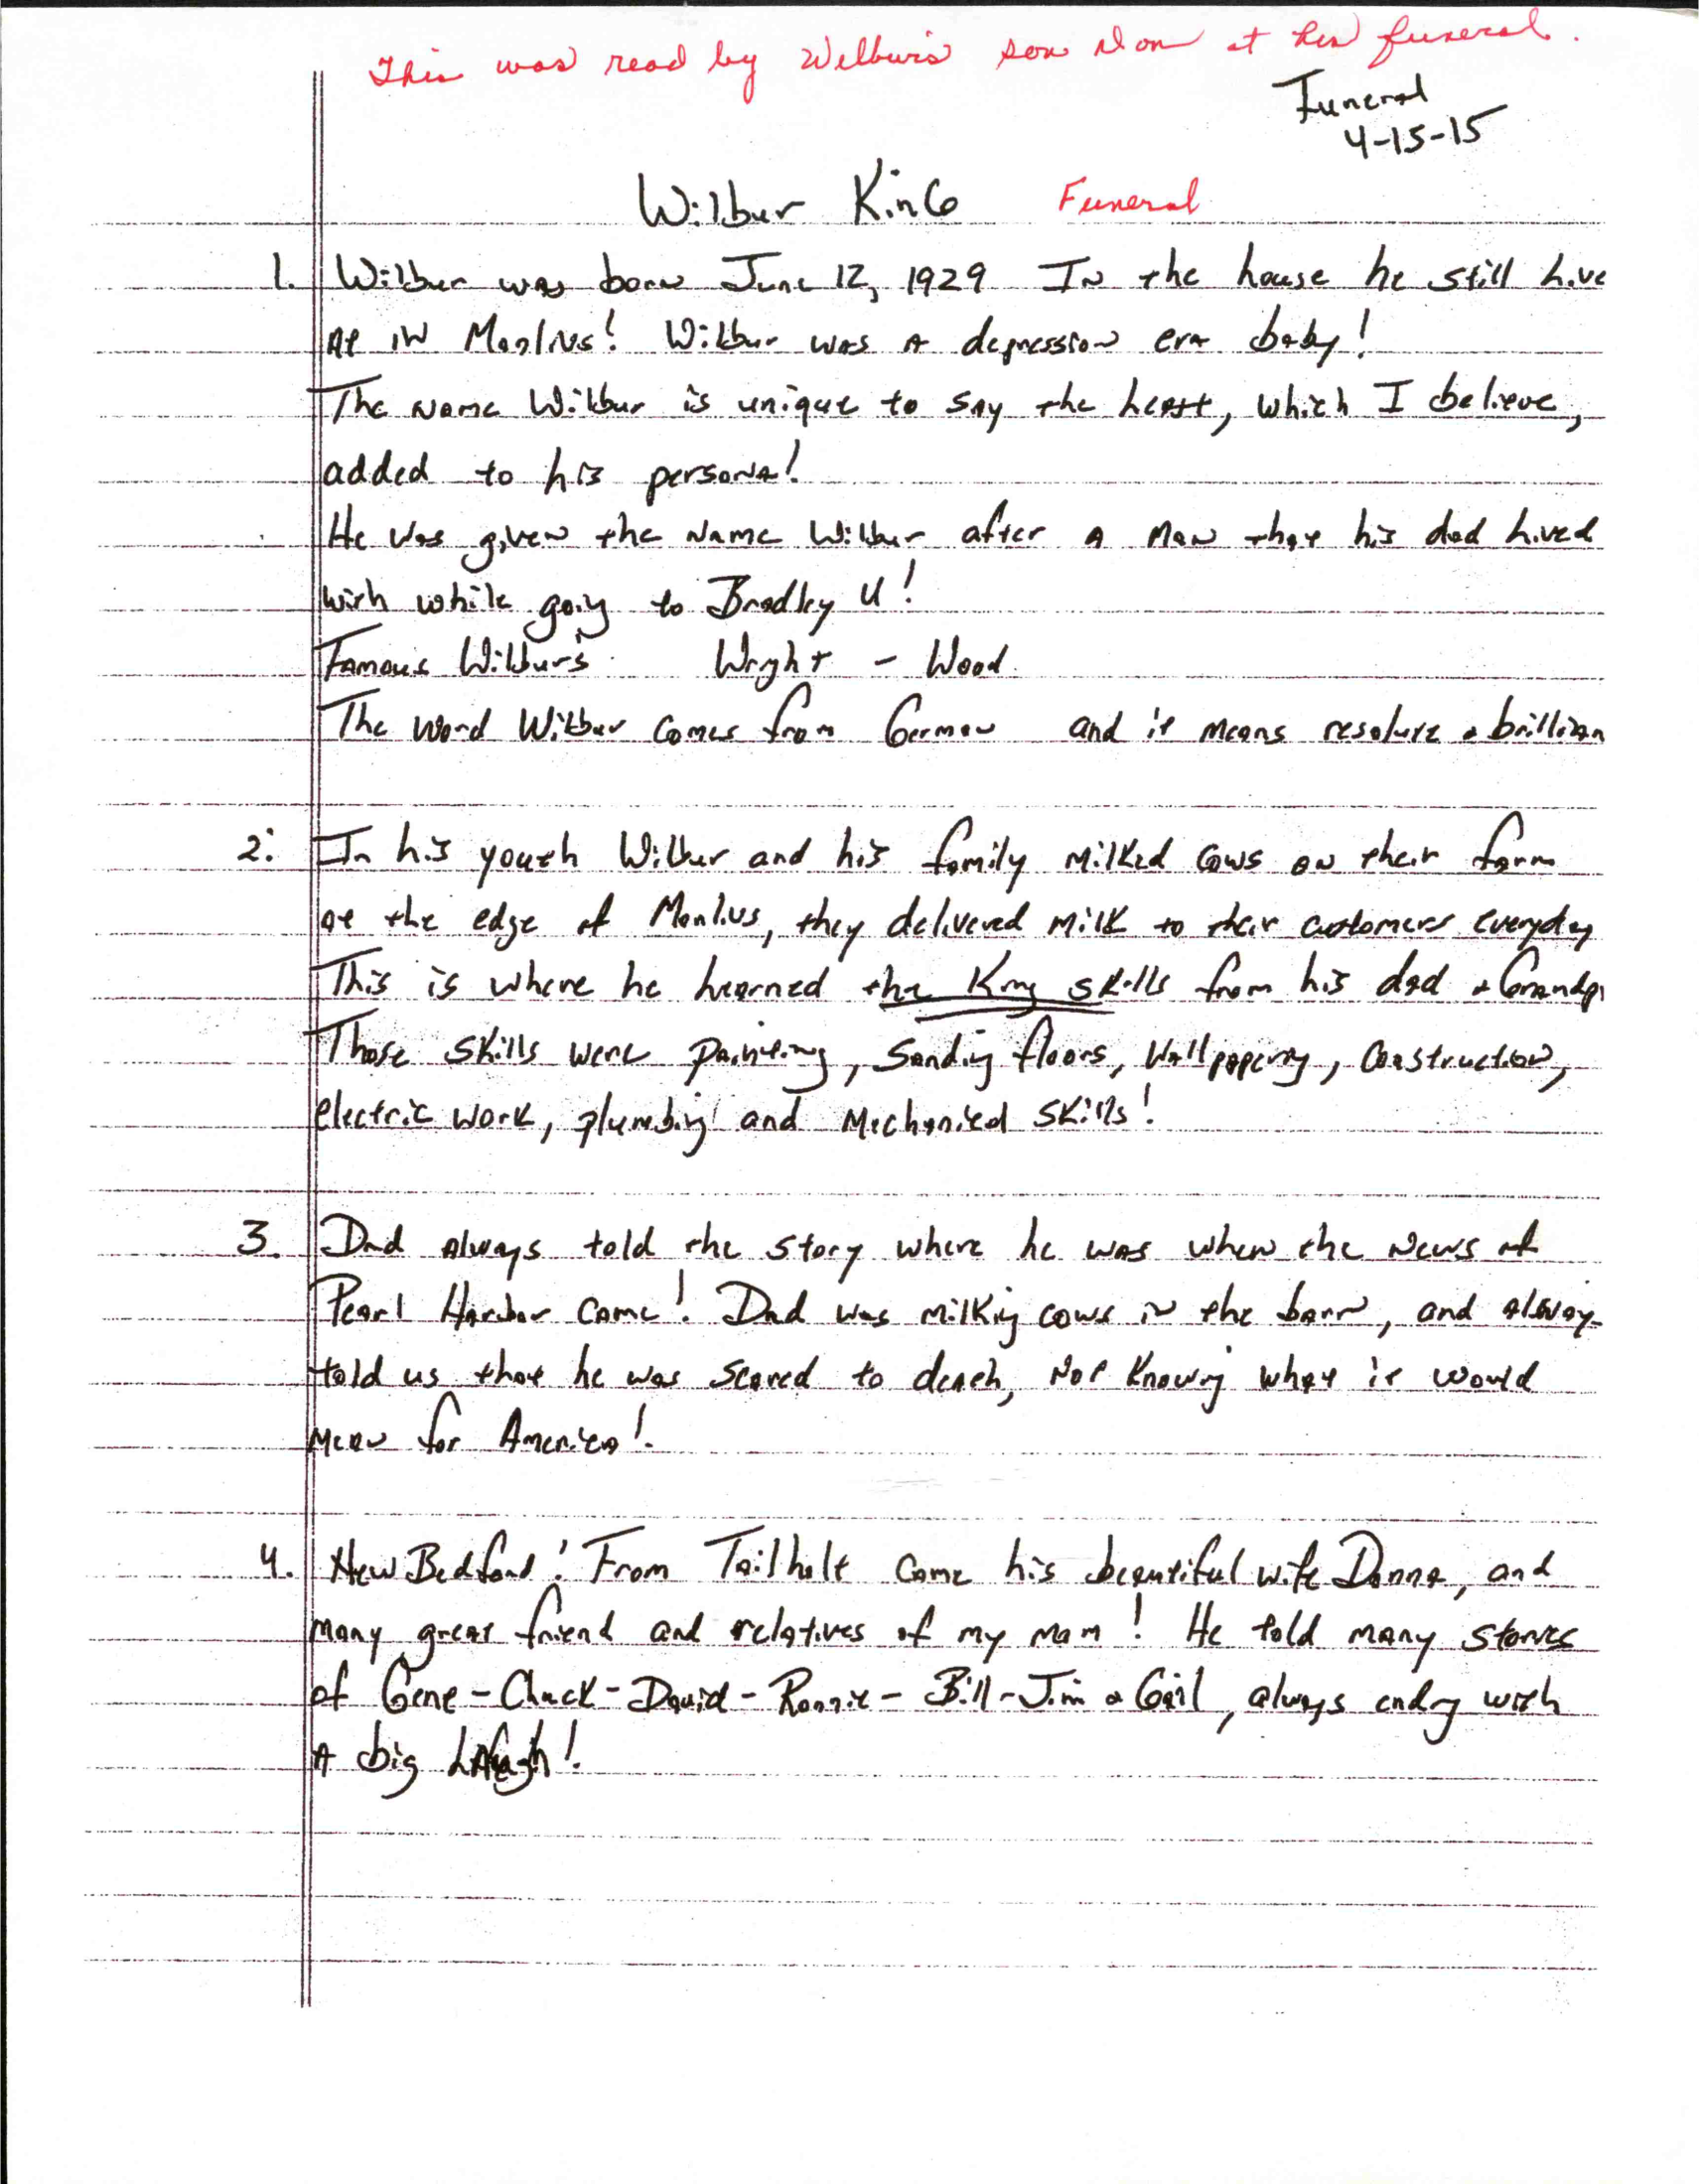 This was read by Wilbur's son Don at his funeral.
Funeral
4-15-15
Wilbur King Funeral
1. Wilbur was born June 12, 1929 In the house he still live
At in Manlius! Wilbur was A depression era baby!
The name Wilbur is unique to say the least, which I believe,
added to his persona!
He was given the name Wilbur after A man that his dad lived
with while going to Bradley U!
Famous Wilburs Wright - Wood
The word Wilbur comes from German and it means resolute & brillian
2. In his youth Wilbur and his family milked cows on their farm
at the edge of Manlius, they delivered milk to their customers everyday
This is where he learned the King skills from his dad & Grandp
Those skills were painting, Sanding floors, Wallpapering, Construction,
electric work, plumbing and Mechanical skills!
3. Dad always told the story where he was when the news of
Pearl Harbor came! Dad was milking cows in the barn, and always
told us that he was scared to death, not knowing what it would
mean for America!
4. New Bedford! From Tailholt came his beautiful wife Donna, and
many great friend and relatives of my mom! He told many stories
of Gene - Chuck - David - Ronnie - Bill - Jim & Gail, always ending with
A big LAugh!